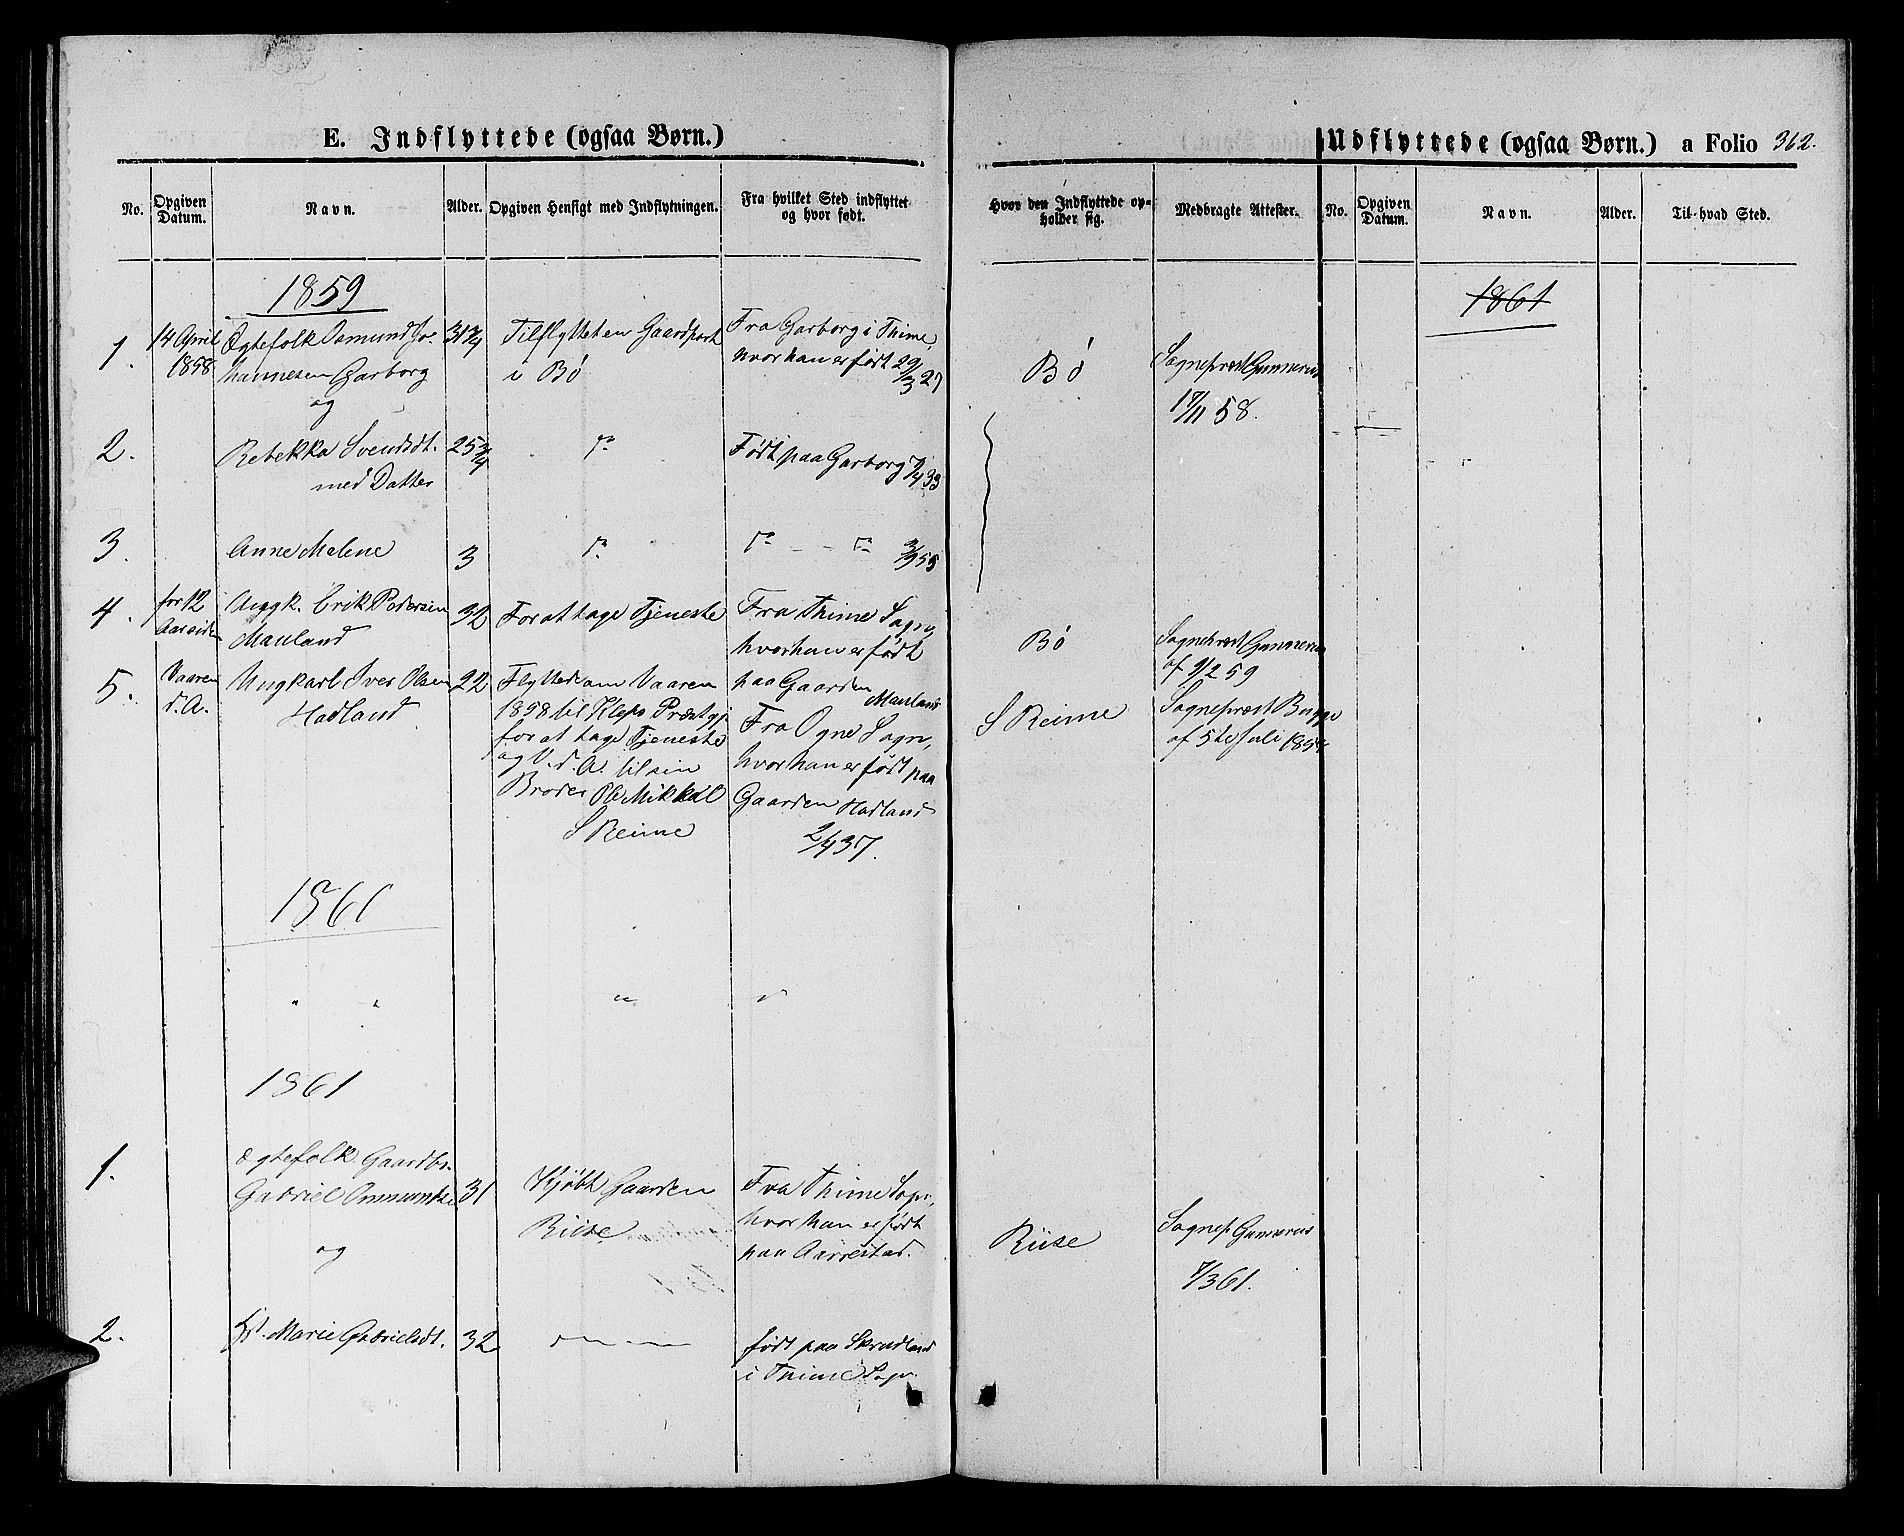 E. Indflyttede (ogsaa Børn.)
No.
Opgiven Datum.
Navn.
Alder.
Opgiven Hensigt med Indflytningen.
Fra hvilket Sted indflyttet og hvor født.
1859
1.
14 April 1858
Ægtefolk Osmund Jo-
hannesen Garborg
og
31 3/4
Tilflyttet en Gaardpart
i Bó
Fra Garborg i Thime,
hvor han er født 29/3 27
2.
Rebekka Svendsdt.
med Datter
25 3/4
Født paa Garborg 33
3.
Anne Malene
3
4.
for 12
Aar siden
Ungk. Erik Pedersen
Mauland
32
For at tage Tjeneste
Fra Thime Sogn,
hvor han er født
paa Gaarden Mauland
5.
Vaaren
d. A.
Ungkarl Iver Olsen
Hadland
22
Flyttede om Vaaren
1858 til Klepp Præstgj.
for at tage Tjeneste
og V. d. A. til sin
Broder Ole Mikkal
S Reime
Fra Ogne Sogn,
hvor han er født paa
Gaarden Hadland
2/4 37.
1860
1861
1.
Ægtefolk. Gaardbr.
Gabriel Omundsen
og
31
Kjøbt Gaarden
Riise
Fra Thime Sogn,
hvor han er født
paa Aarrestad.
2.
Marie Gabrielsdt.
32
født paa Skrudland
i Thime Sogn
Udflyttede (ogsaa Børn.) a Folio 362.
Hvor den Indflyttede op-
holder sig.
Medbragte Attester.
No.
Opgiven Datum.
Navn.
Alder.
Til hvad Sted.
1861
Bó
Sognepræst Gunnerus
17/11 58.
Bó
Sognepræst Gunnerus
af 9/2 59
S Reime
Sognepræst Bugge
af 5te Juli
Riise
Sognep. Gunnerus
7/3 61.